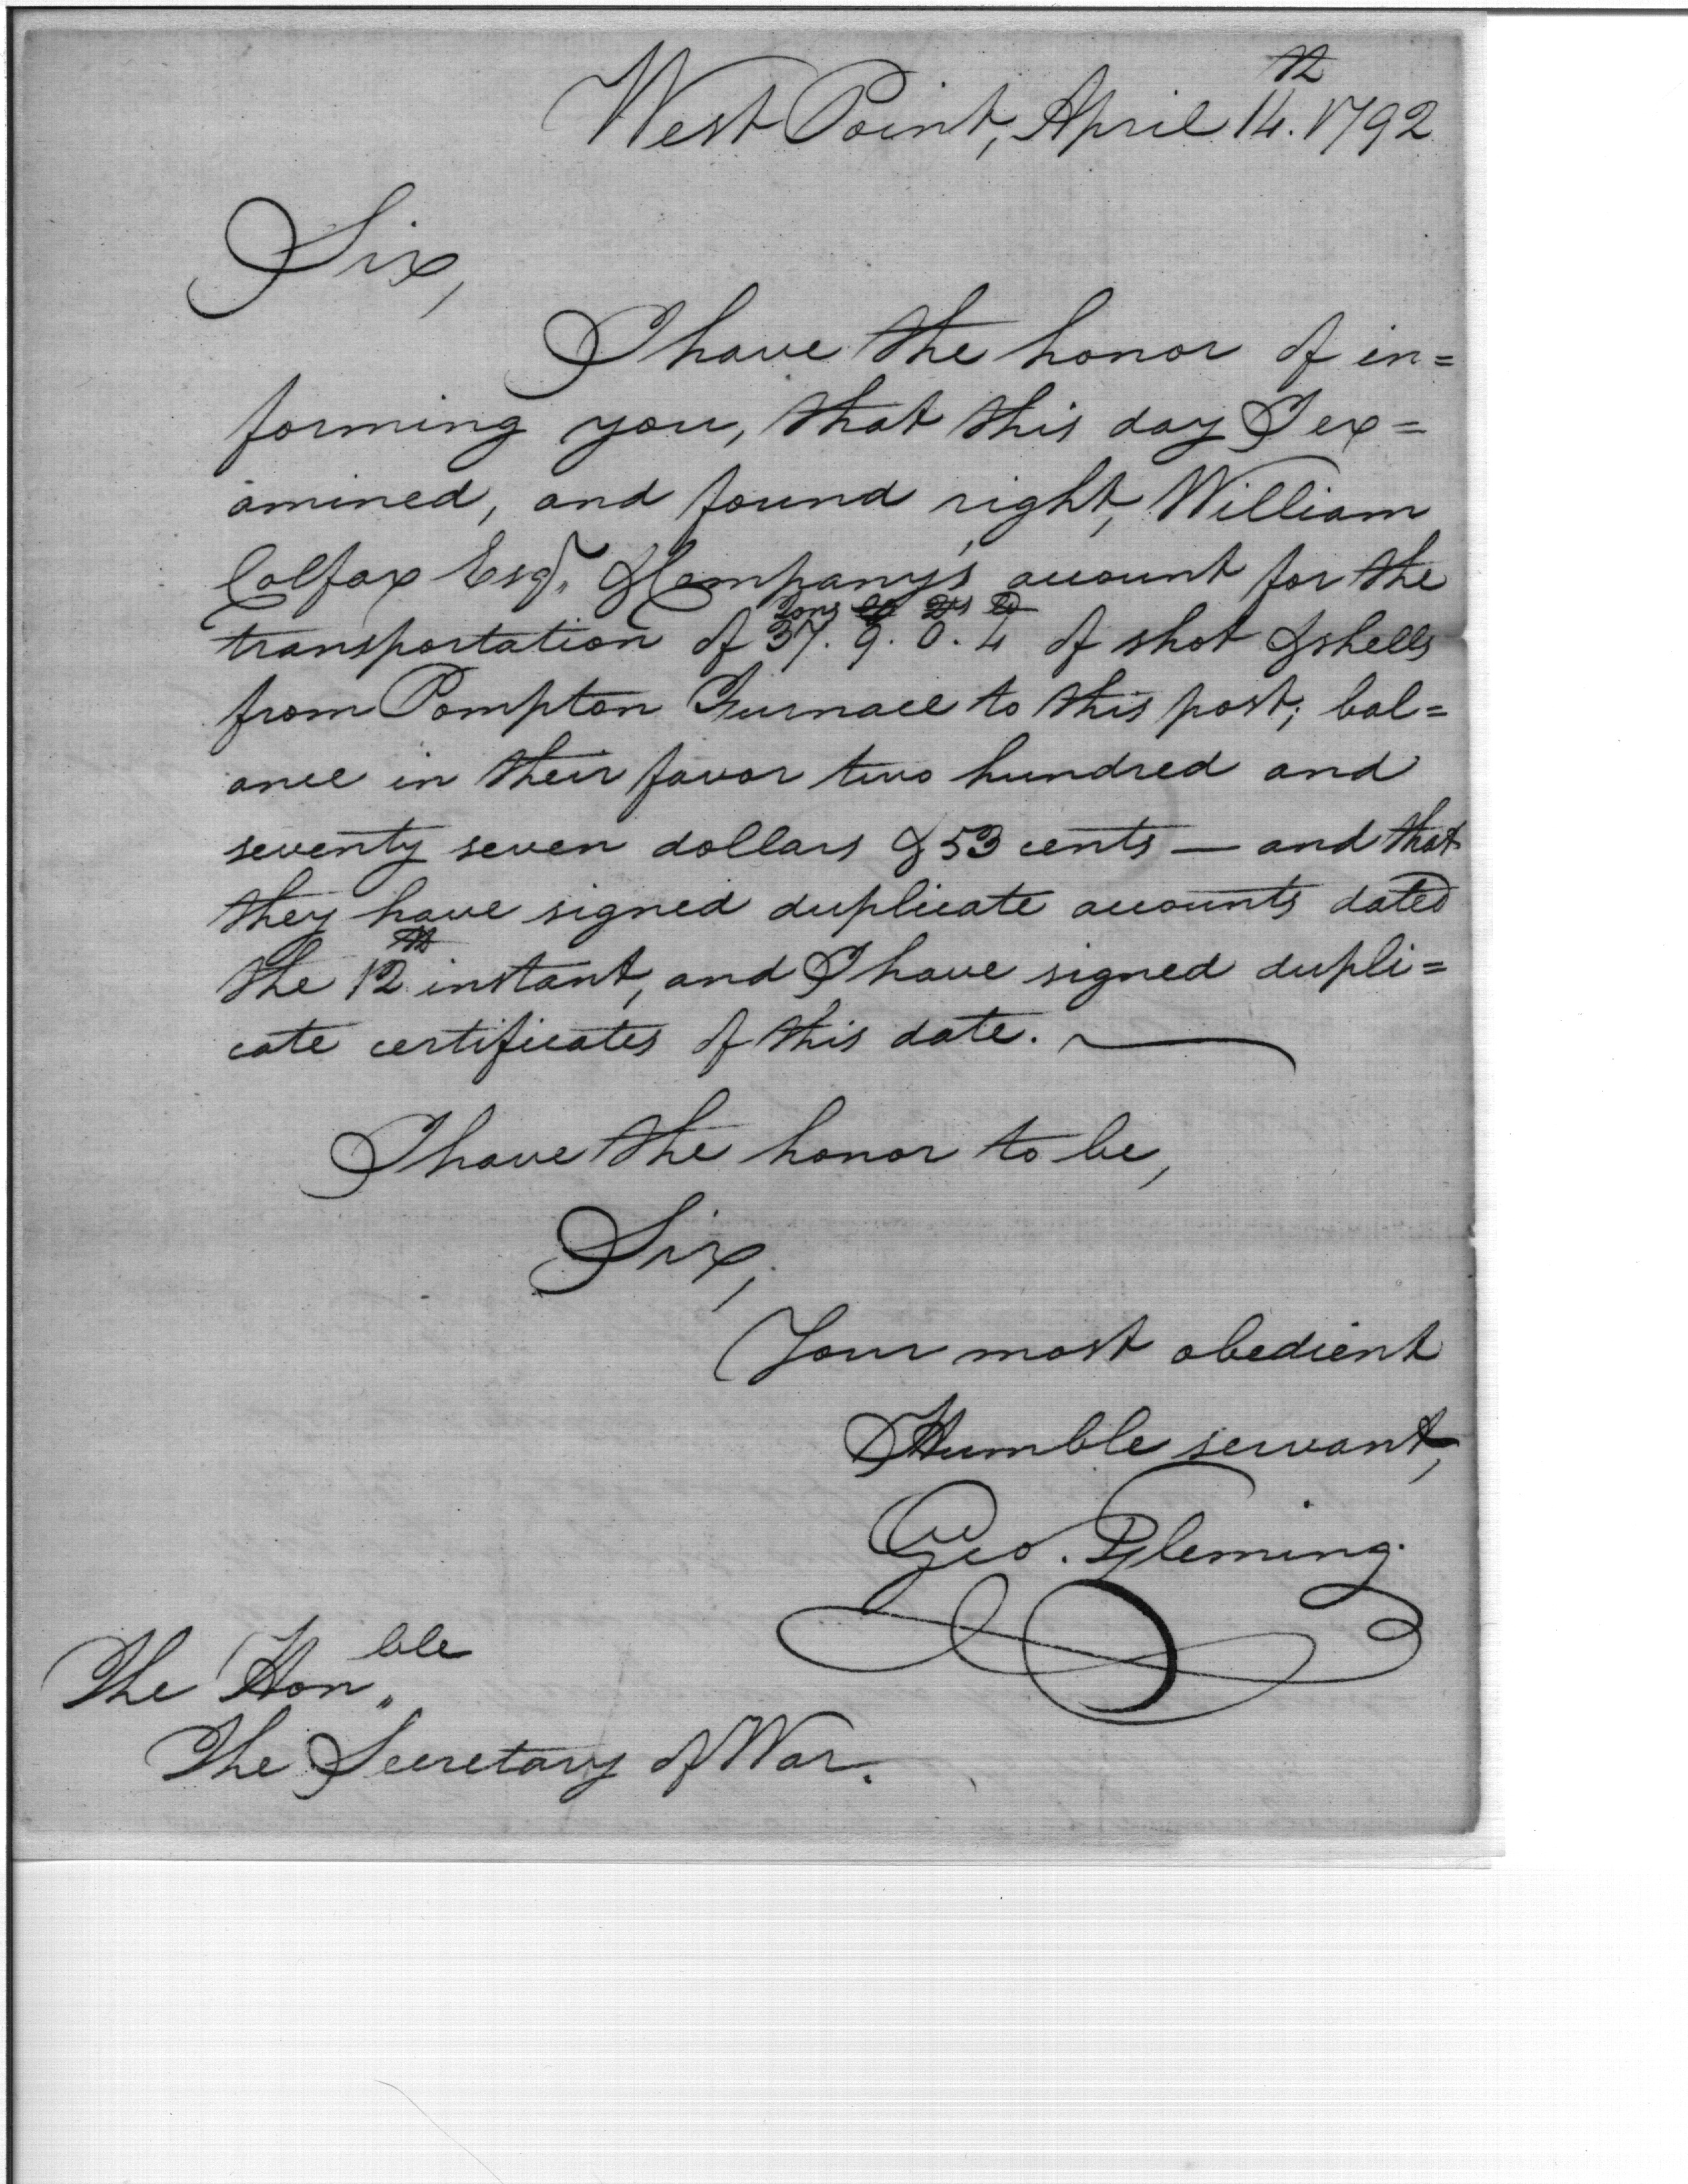 West Point, April 14.th 1792
Sir,
I have the honor of in=
forming you, that this day I ex=
amined, and found right, William
Colfax Esqr. & Company's account for the
Tons C Qrs lb
transportation of 37. 9. 0. 4 of shot & shells
from Pompton Furnace to this post; bal=
ance in their favor two hundred and
seventy seven dollars & 53 cents — and that
they have signed duplicate accounts dated
the 12th instant, and I have signed dupli=
cate certificates of this date.
I have the honor to be,
Sir,
Your most obedient
Humble servant,
Geo. Fleming.
The Hon,,ble
The Secretary of War.